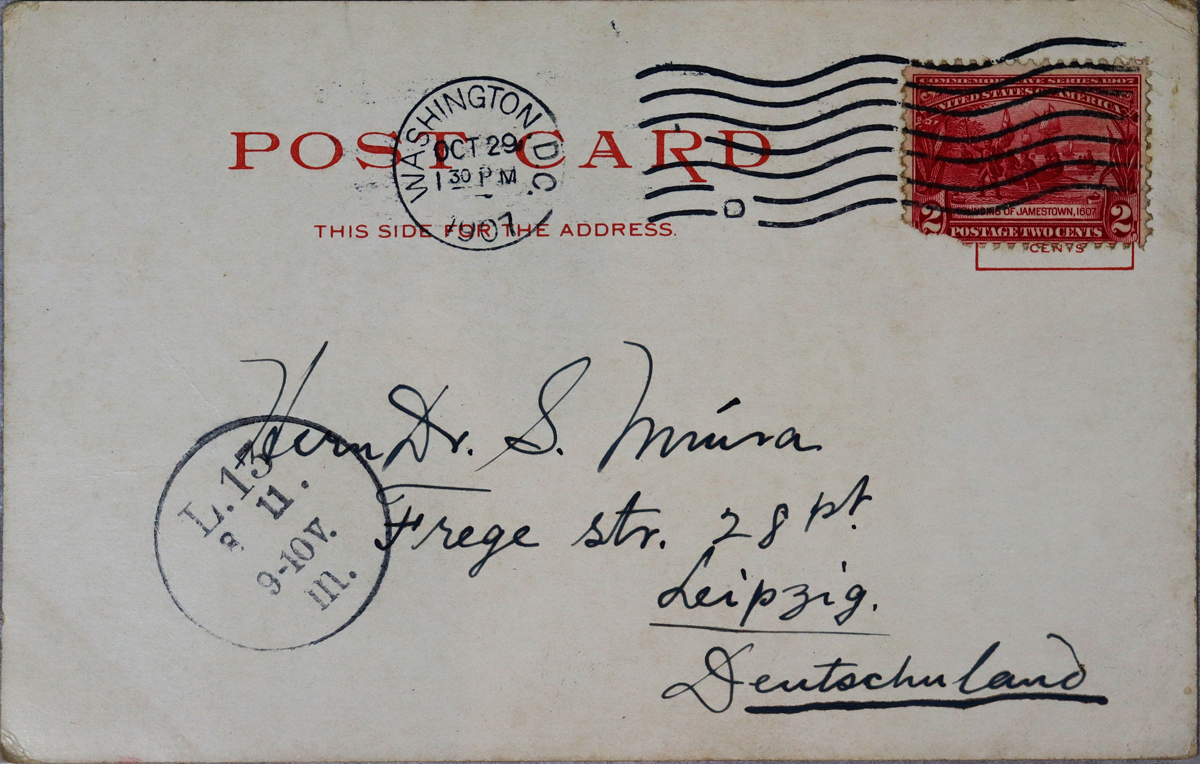 COMMEMORATIVE SERIES 1907
UNITED STATES OF AMERICA
FOUNDING OF JAMESTOWN, 1607
2 POSTAGE TWO CENTS 2
CENTS
WASHINGTON D.C.
OCT 29
1 30 P M
1907
POST CARD
THIS SIDE FOR THE ADDRESS.
D
Herrn Dr. S. Miura
Frege str. 28 pt.
Leipzig.
Deutschuland
L.13
8 11.
9-10V.
m.